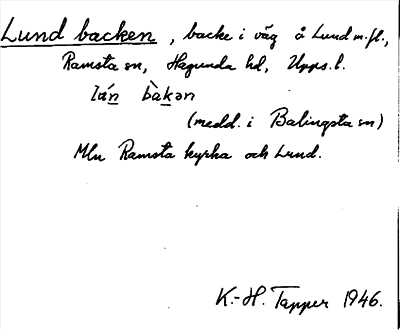 Lund backen, backe i väg å Lund m.fl.,
Ramsta sn, Hagunda hd, Upps. l.
bàkən
(medd. i Balingsta sn)
Mln Ramsta kyrka och Lund.
K.-H. Tapper 1946.